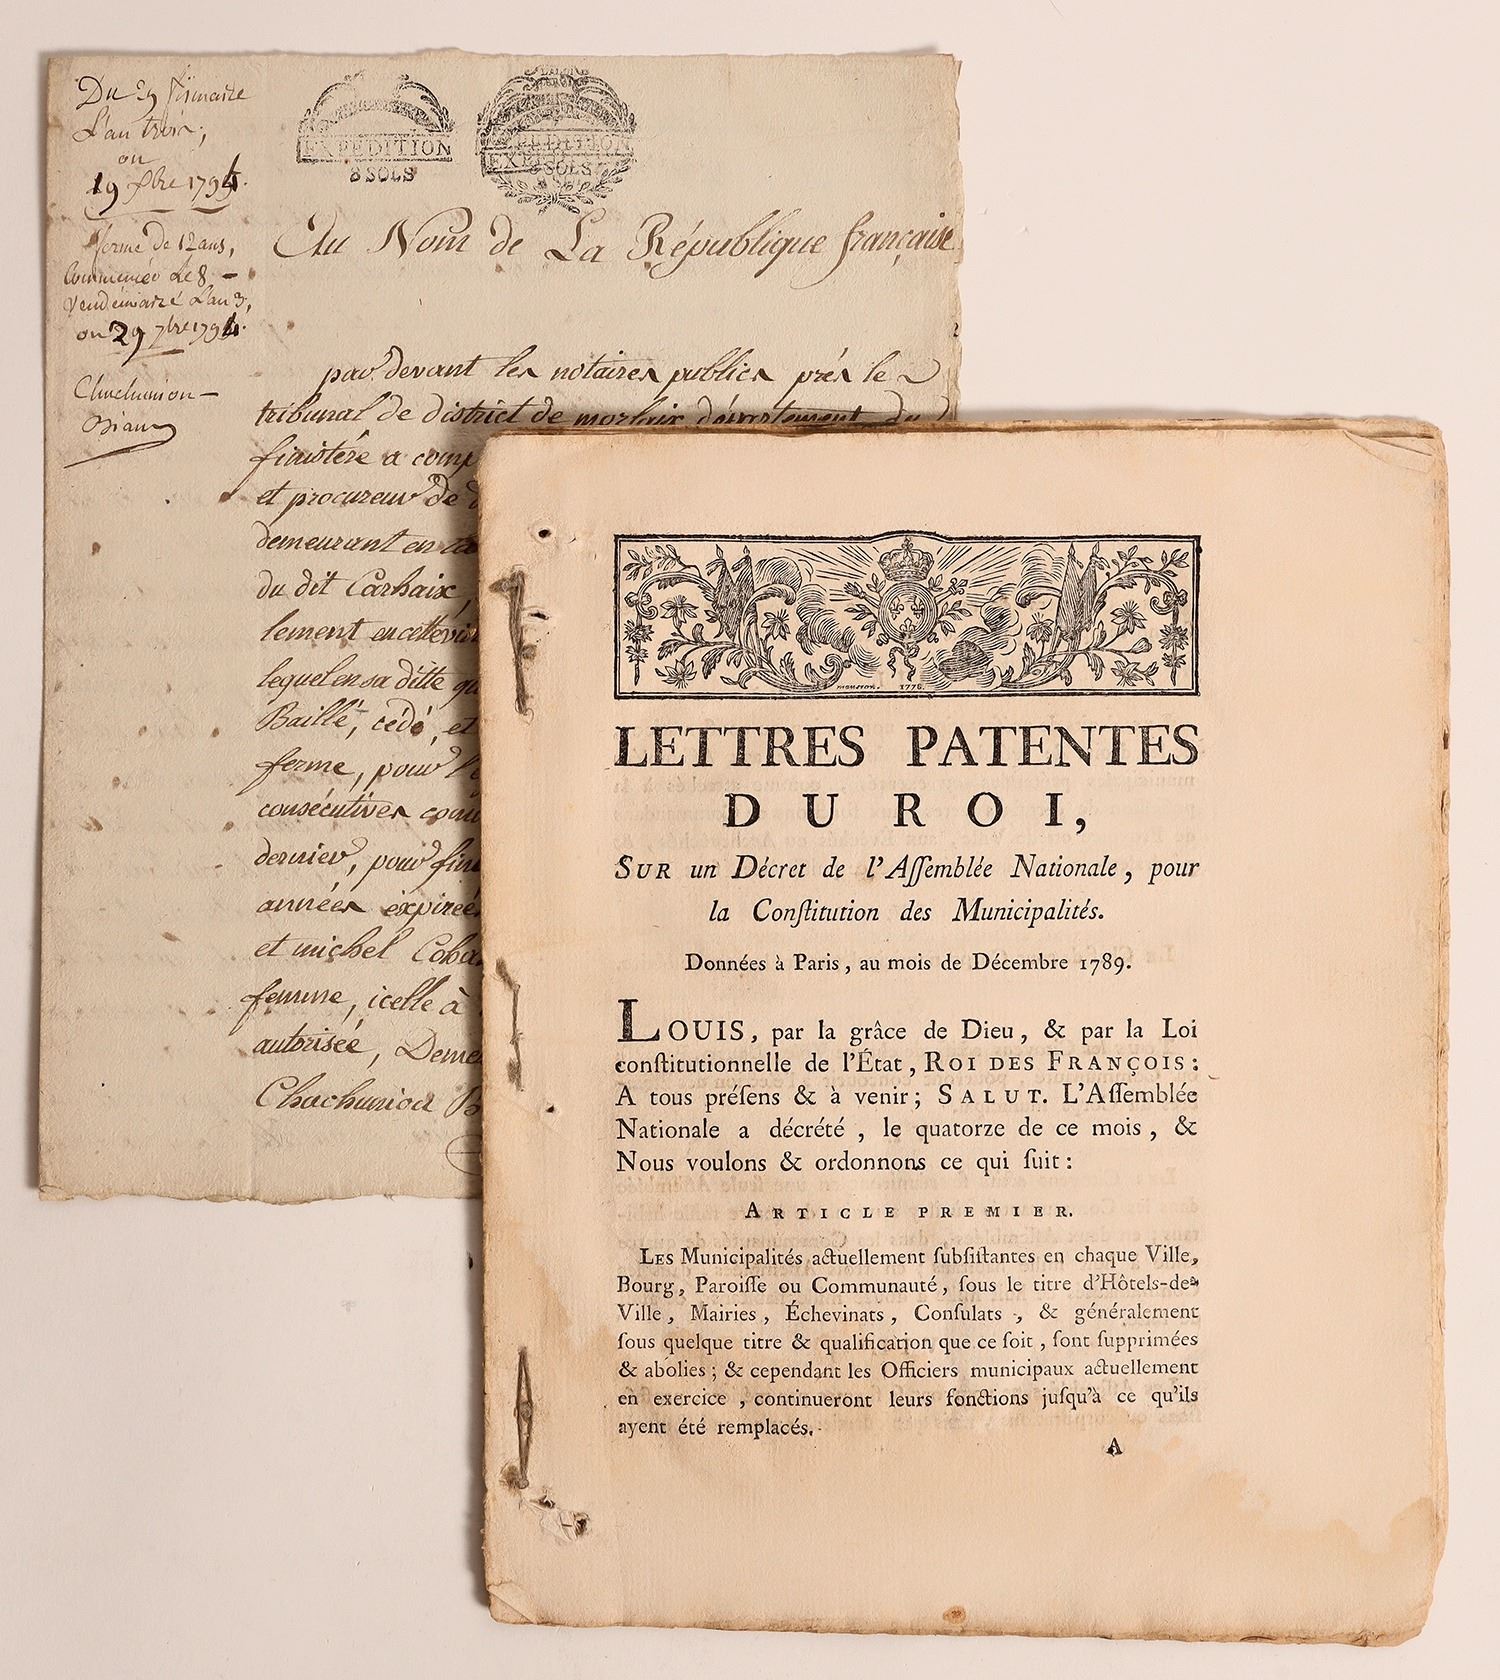 Du 29 frimaire
L'an trois,
ou
19 xbre 1794.
ferme de 12 ans,
Commencée Le 8
Vendémiaire L'an 3,
ou 29 7bre 1794.
EXPEDITION
8 SOLS
EXPEDITION
SOLS
Au Nom de La République française
par devant les notaires publics près le
tribunal de district de morlaix département du
finistére a comp
et procureur de
demeurant en
du dit Carhaix,
lement en cette
lequel en sa ditte
Baillé, cédé, et
ferme, pour
consécutives com
dernier, pour fin
années expirées
et michel
femme, icelle à
autorisée, Deme
LETTRES PATENTES
DU ROI,
SUR un Décret de l'Aſſemblée Nationale, pour
la Conſtitution des Municipalités.
Données à Paris, au mois de Décembre 1789.
LOUIS, par la grâce de Dieu, & par la Loi
conſtitutionnelle de l'État, ROI DES FRANÇOIS:
A tous préſens & à venir; SALUT. L'Aſſemblée
Nationale a décrété, le quatorze de ce mois, &
Nous voulons & ordonnons ce qui ſuit:
ARTICLE PREMIER.
LES Municipalités actuellement ſubſiſtantes en chaque Ville,
Bourg, Paroiſſe ou Communauté, ſous le titre d'Hôtels-de-
Ville, Mairies, Échevinats, Conſulats, & généralement
ſous quelque titre & qualification que ce ſoit, ſont ſupprimées
& abolies; & cependant les Officiers municipaux actuellement
en exercice, continueront leurs fonctions juſqu'à ce qu'ils
ayent été remplacés.
A